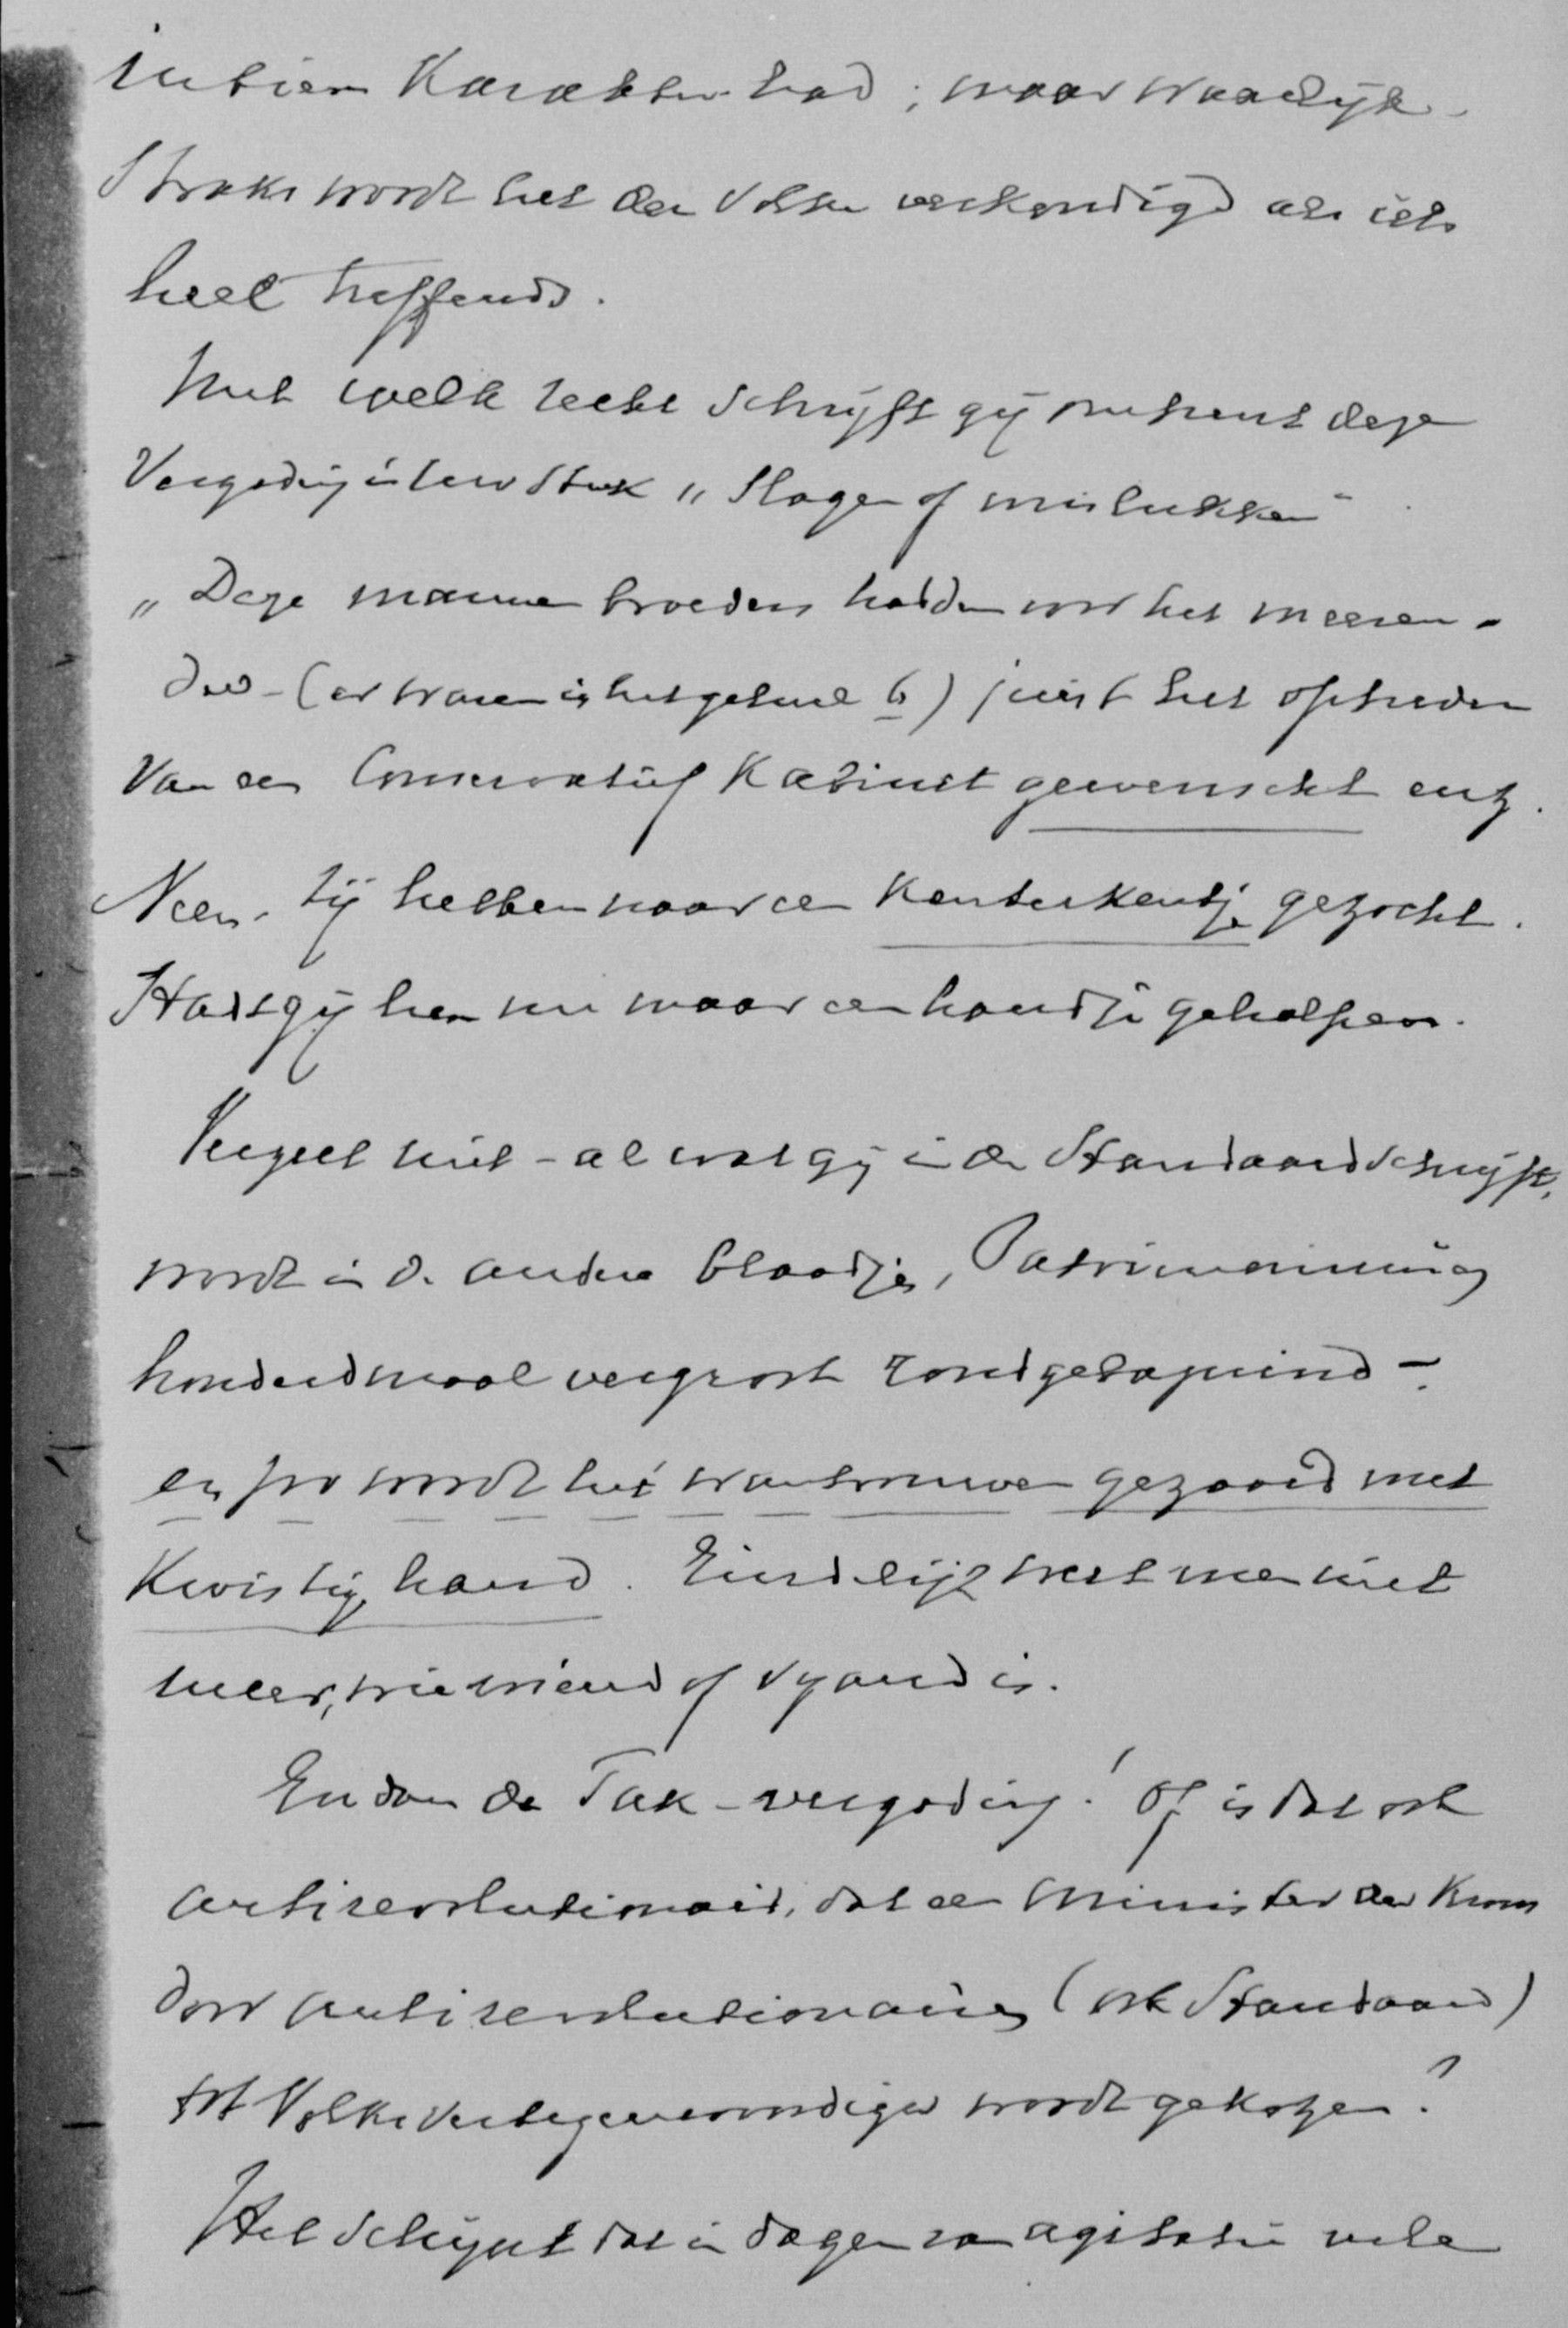 intiem karakter had; maar waarlijk
straks wordt het den volke verkondigd als iets
heel treffends.
Met welk recht schrijft gij omtrent deze
Vergadering in uw stuk „Slagen of mislukken"
„Deze mannen broeders hadden voor het meeren-
deel - (er waren in het geheel 6) juist het optreden
van een Conservatief Kabinet gewenscht enz.
Neen. Zij hebben naar een kenterkentje gezocht.
Hadt gij hen nu maar een handje geholpen.
Vergeet niet - al wat gij in de Standaard schrijft,
wordt in de andere blaadjes, Patrimonium
honderdmaal vergroot rondgebazuind -
en zoo wordt het wantrouwen gezaaid met
kwistige hand. Eindelijk weet men niet
meer, wie vriend of vyand is.
En dan de Tak-vergoding! Of is dat ook
antirevolutionair, dat een Minister der Kroon
door antirevolutionairen (ook Standaard)
tot Volksvertegenwoordiger wordt gekozen?
Het schynt dat in dagen van agitatie vele